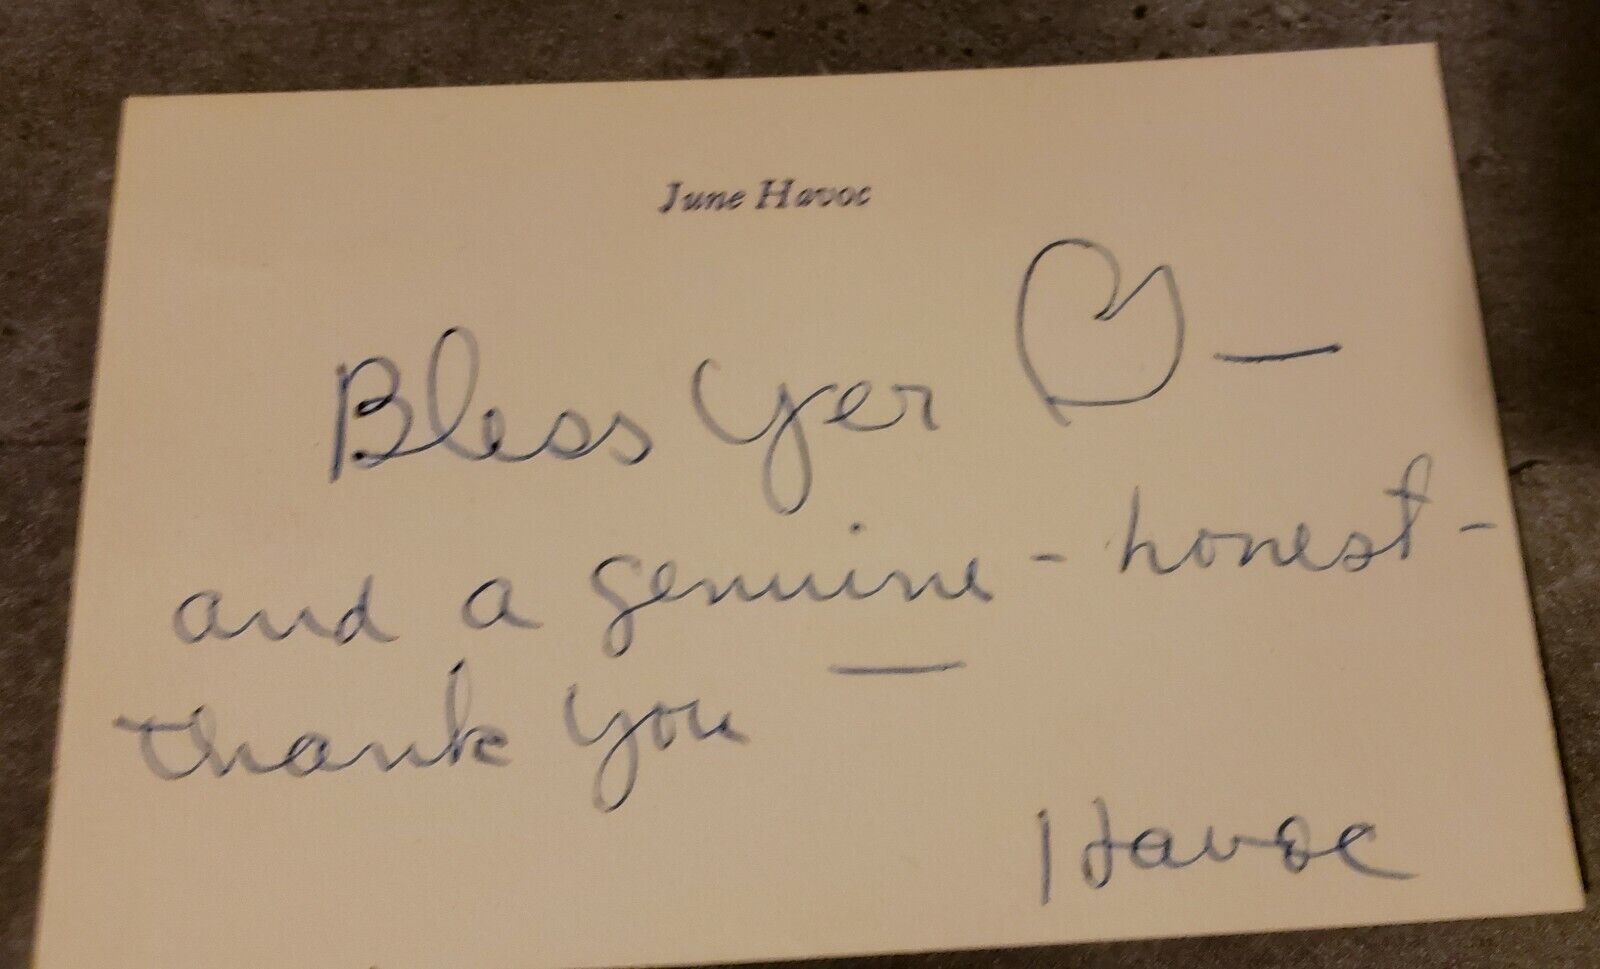 June Havoc
Bless Yer ♡ —
and a genuine - honest -
thank you —
Havoc